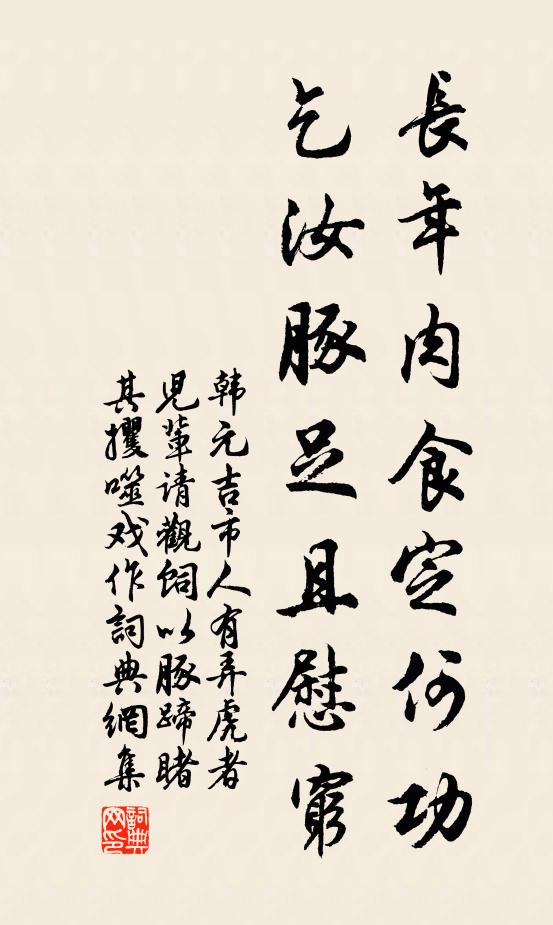 長年肉食定何功
乞汝豚足且慰窮
韩元吉市人有弄虎者
児輩请觀飼以豚蹄睹
其攫噬戏作詞典網集
詞典網印